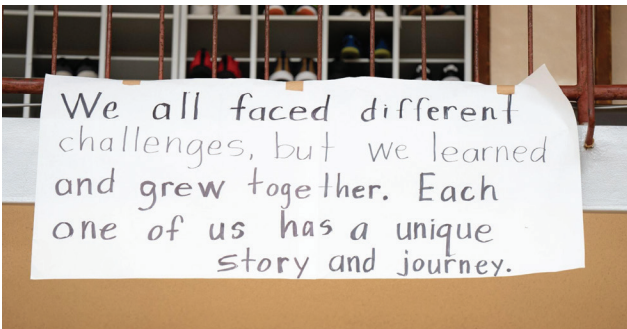 We all faced different
challenges, but we learned
and grew together. Each
one of us has a unique
story and journey.